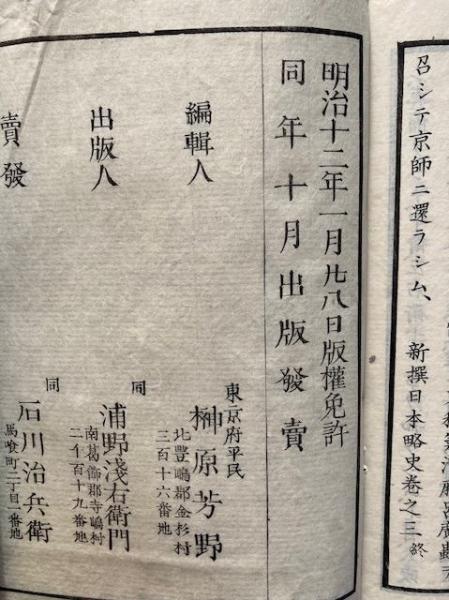 召シテ京師ニ還ラシム、
新撰日本略史卷之三終
明治十二年一月廿八日版權免許
同年十月出版發賣
編輯人
東京府平民
榊原芳野
北豐嶋郡金杉村
三百十六番地
出版人
同
浦野淺右衛門
南葛飾郡寺嶋村
二千百十九番地
賣發
同
石川治兵衛
馬喰町二丁目一番地